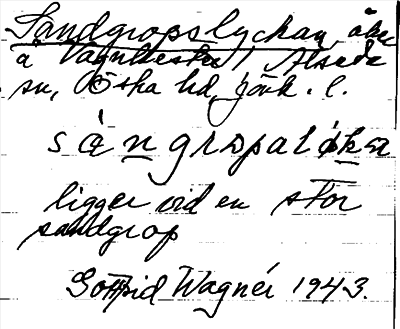 Sandgropslyckan, åker
å Vagnhester / Alseda
sn, Östra hd, Jönk. l.
sàngrɷpalókan
ligger vid en stor
sandgrop
Gottfrid Wagnér 1943.